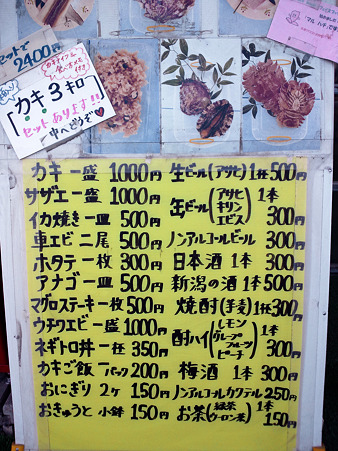 セットで
2400円
「カキ3キロ」
セットあります!!
中へどうぞ♥
カキ 一盛 1000円
サザエ 一盛 1000円
イカ焼き 一皿 500円
車エビ 二尾 500円
ホタテ 一枚 300円
アナゴ 一皿 500円
マグロステーキ 一枚 500円
ウチワエビ 一盛 1000円
ネギトロ丼 一杯 350円
カキご飯 1パック 200円
おにぎり 2ケ 150円
おきゅうと 小鉢 150円
生ビール(アサヒ) 1杯 500円
缶ビール(アサヒ キリン エビス) 1本 300円
ノンアルコールビール 300円
日本酒 1本 300円
新潟の酒 1本 500円
焼酎(芋麦) 1杯 300円
酎ハイ(レモン グレープフルーツ ピーチ) 1本 300円
梅酒 1本 300円
ノンアルコールカクテル 250円
お茶(緑茶 ウーロン茶) 1本 150円